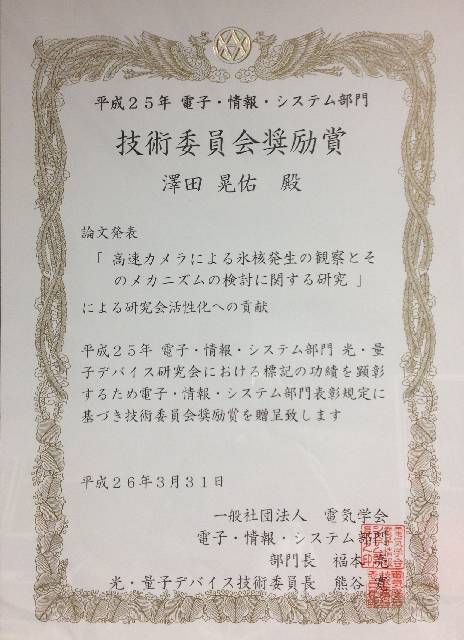 平成２５年 電子・情報・システム部門
技術委員会奨励賞
澤田 晃佑 殿
論文発表
「 高速カメラによる氷核発生の観察とそ
のメカニズムの検討に関する研究 」
による研究会活性化への貢献
平成２５年 電子・情報・システム部門 光・量
子デバイス研究会における標記の功績を顕彰
するため電子・情報・システム部門表彰規定に
基づき技術委員会奨励賞を贈呈致します
平成２６年３月３１日
一般社団法人 電気学会
電子・情報・システム部門
部門長 福本
光・量子デバイス技術委員長 熊谷